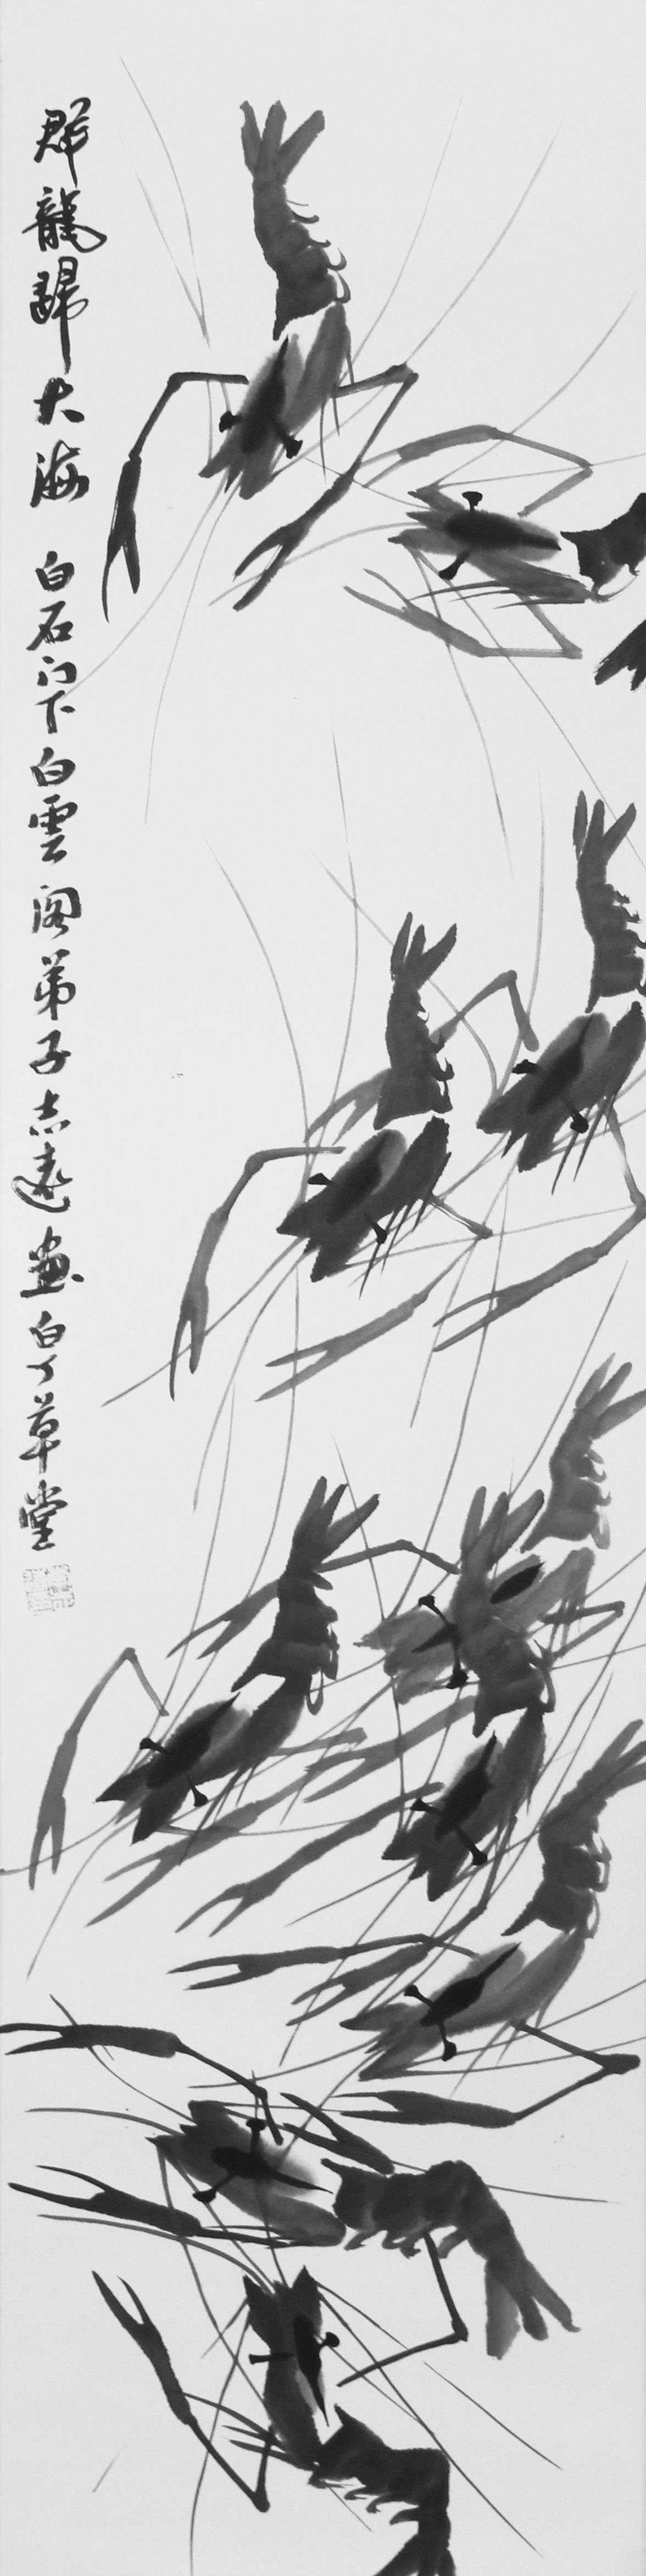 群龍歸大海 白石門下白雲阁弟子志遠畫白丁草堂